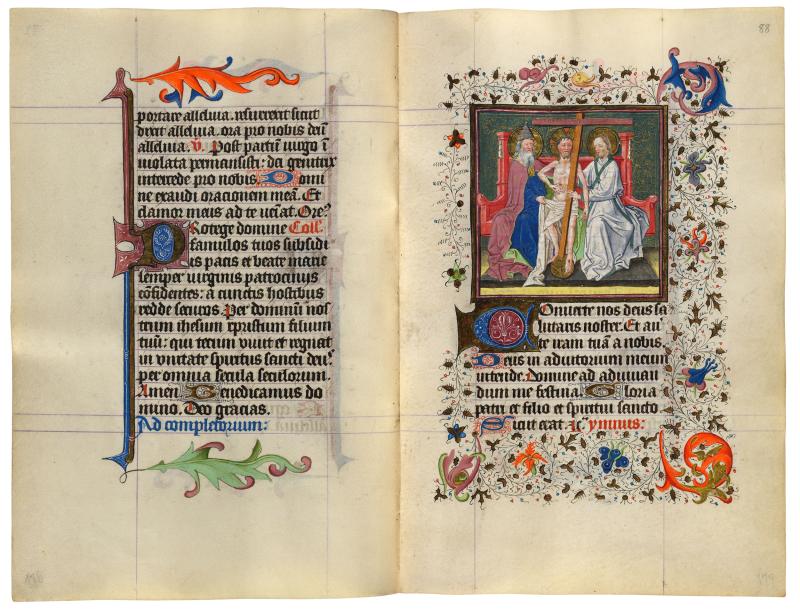 portare alleluia. resurrexit sicut
dixit alleluia. ora pro nobis deū
alleluia. V. Post partū uirgo ī
uiolata permansisti: dei genitrix
intercede pro nobis. Domi
ne exaudi orationem meā. Et
clamor meus ad te ueiat. Ore?
Protege domine Coll.
famulos tuos subsidi
is pacis et beate marie
semper uirginis patrocinijs
cōfidentes: a cunctis hostibus
redde securos. Per dominū nos
trum ihesum xpristum filium
tuū: qui tecum uiuit et regnat
in unitate spiritus sancti deus.
per omnia secula seculorum.
Amen. Benedicamus do
mino. Deo gracias.
Ad completorium:
88
Conuerte nos deus sa
lutaris noster. Et auer
te iram tuā a nobis.
Deus in adiutorium meum
intende. Domine ad adiuuan
dum me festina. Gloria
patri et filio et spiritui sancto
Sicut erat. ymnus:
179